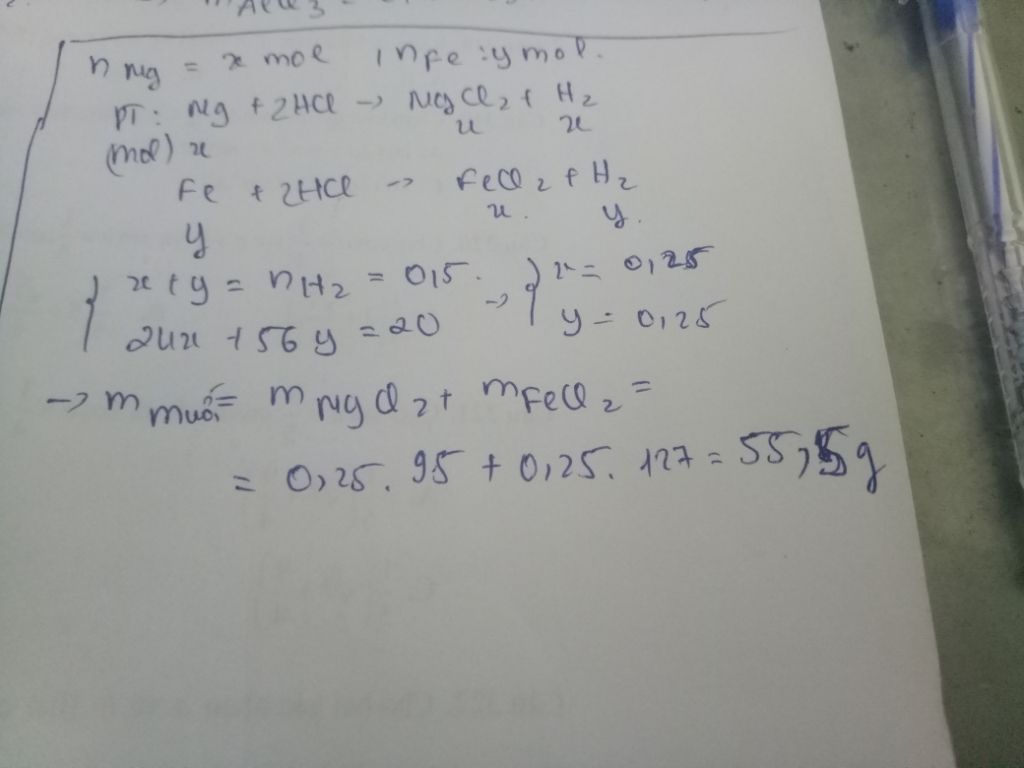 n Mg = x mol , n Fe : y mol.
PT: Mg + 2HCl -> MgCl2 + H2
x x
(mol) x
Fe + 2HCl -> FeCl2 + H2
x. y.
y
{ x + y = nH2 = 0,5. -> } x = 0,25
24x + 56y = 20 y = 0,25
-> m muối = m MgCl2 + m FeCl2 =
= 0,25. 95 + 0,25. 127 = 55,5g